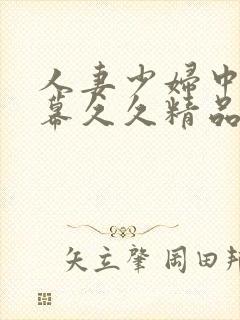 人妻少婦中
幕久久精品
矢立肇 岡田邦